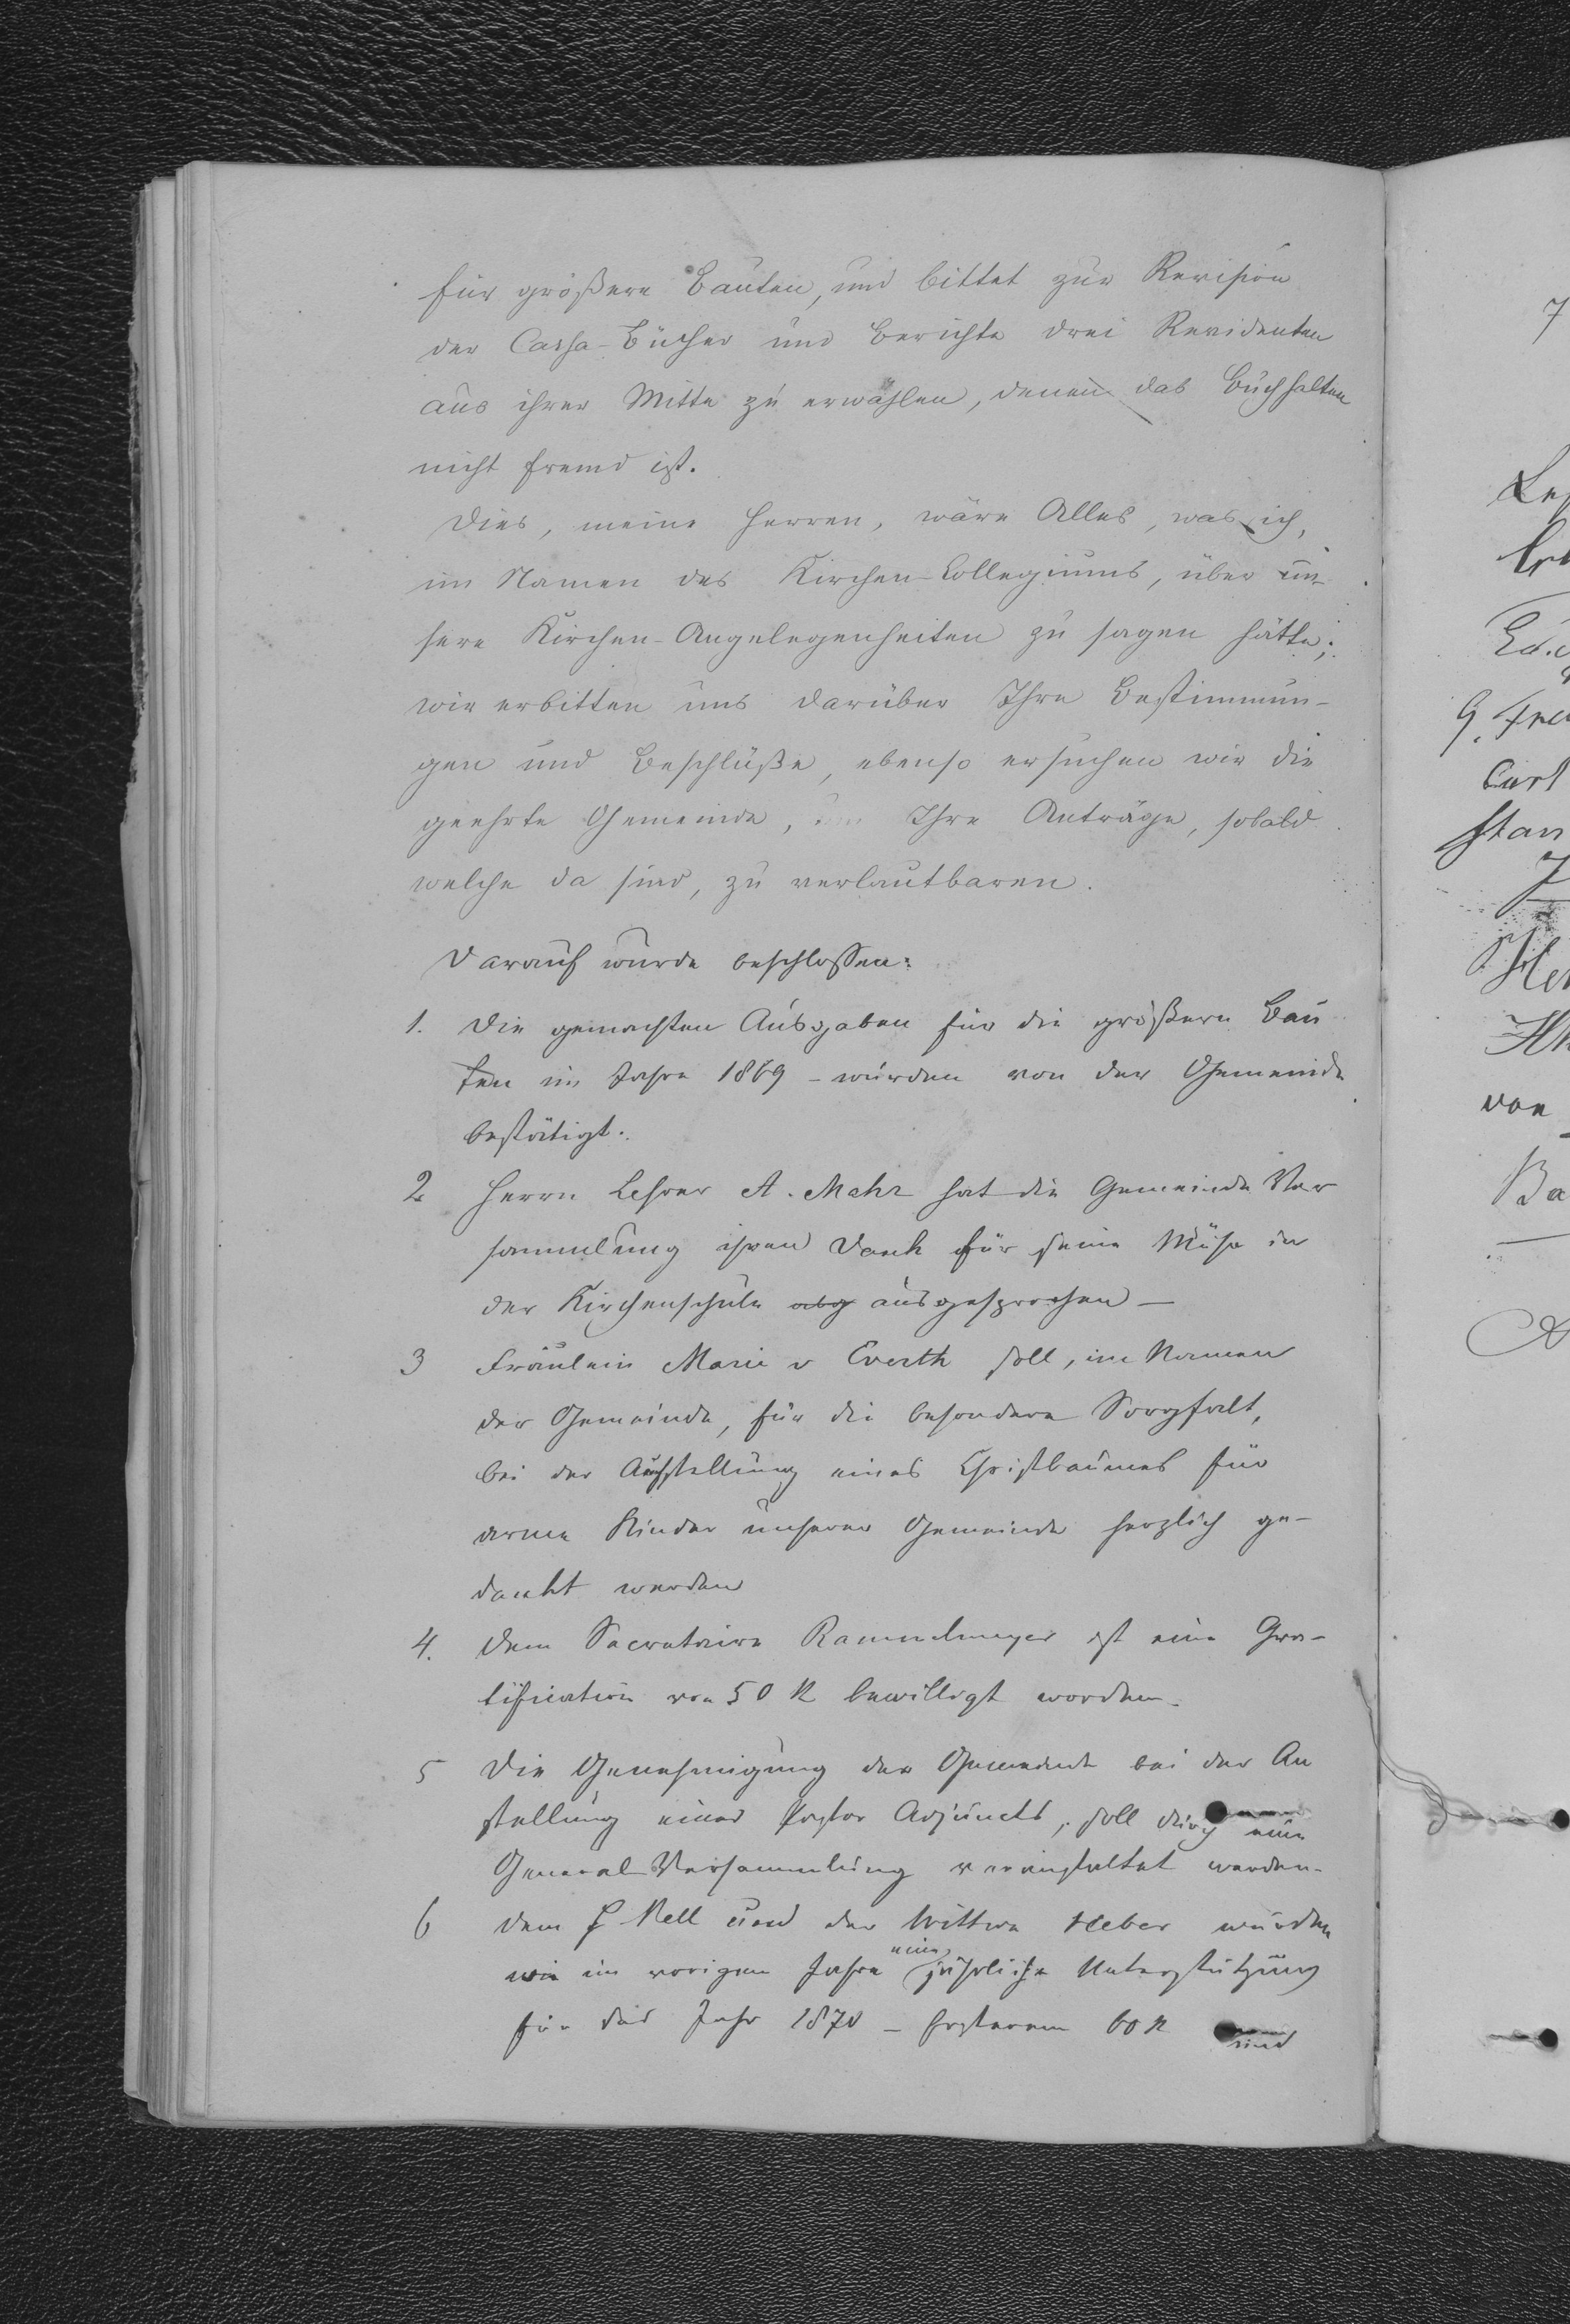 für größere Bauten, und bittet zur Revision
der Cassa-Bücher und Berichte drei Revidenten
aus ihrer Mitte zu erwählen, denen das Buchhalten
nicht fremd ist.
Dies, meine Herren, wäre Alles, was ich,
im Namen des Kirchen-Collegiums, über un-
sere Kirchen-Angelegenheiten zu sagen hätte;
wir erbitten uns darüber Ihre Bestimmun-
gen und Beschlüße, ebenso ersuchen wir die
geehrte Gemeinde, Ihre Anträge, sobald
welche da sind, zu verlautbaren.
Darauf wurde beschlossen:
1. Die gemachten Ausgaben für die größern Bau
ten im Jahre 1869 - wurden von der Gemeinde
bestätigt.
2 Herrn Lehrer A. Mahr hat die Gemeinde Ver
sammlung ihren Dank für seine Mühe in
der Kirchenschule abg ausgesprochen —
3 Fräulein Marie v Everth soll, im Namen
der Gemeinde, für die besondere Sorgfalt,
bei der Aufstellung eines Christbaumes für
arme Kinder unserer Gemeinde herzlich ge-
dankt werden
4. Dem Secretaire Rammelmeyer ist eine Gra-
tification von 50 R bewilligt worden.
5 Die Genehmigung der Gemeinde bei der An
stellung eines Pastor Adjuncts, soll durch eine
General Versammlung veranstaltet werden.
6 Dem Nell und der Wittwe Heber wurden
wie im vorigen Jahre eine jährliche Unterstützung
für das Jahr 1870 - Ersterem 60 R und
7
G. Frey
Curt
von
Ba